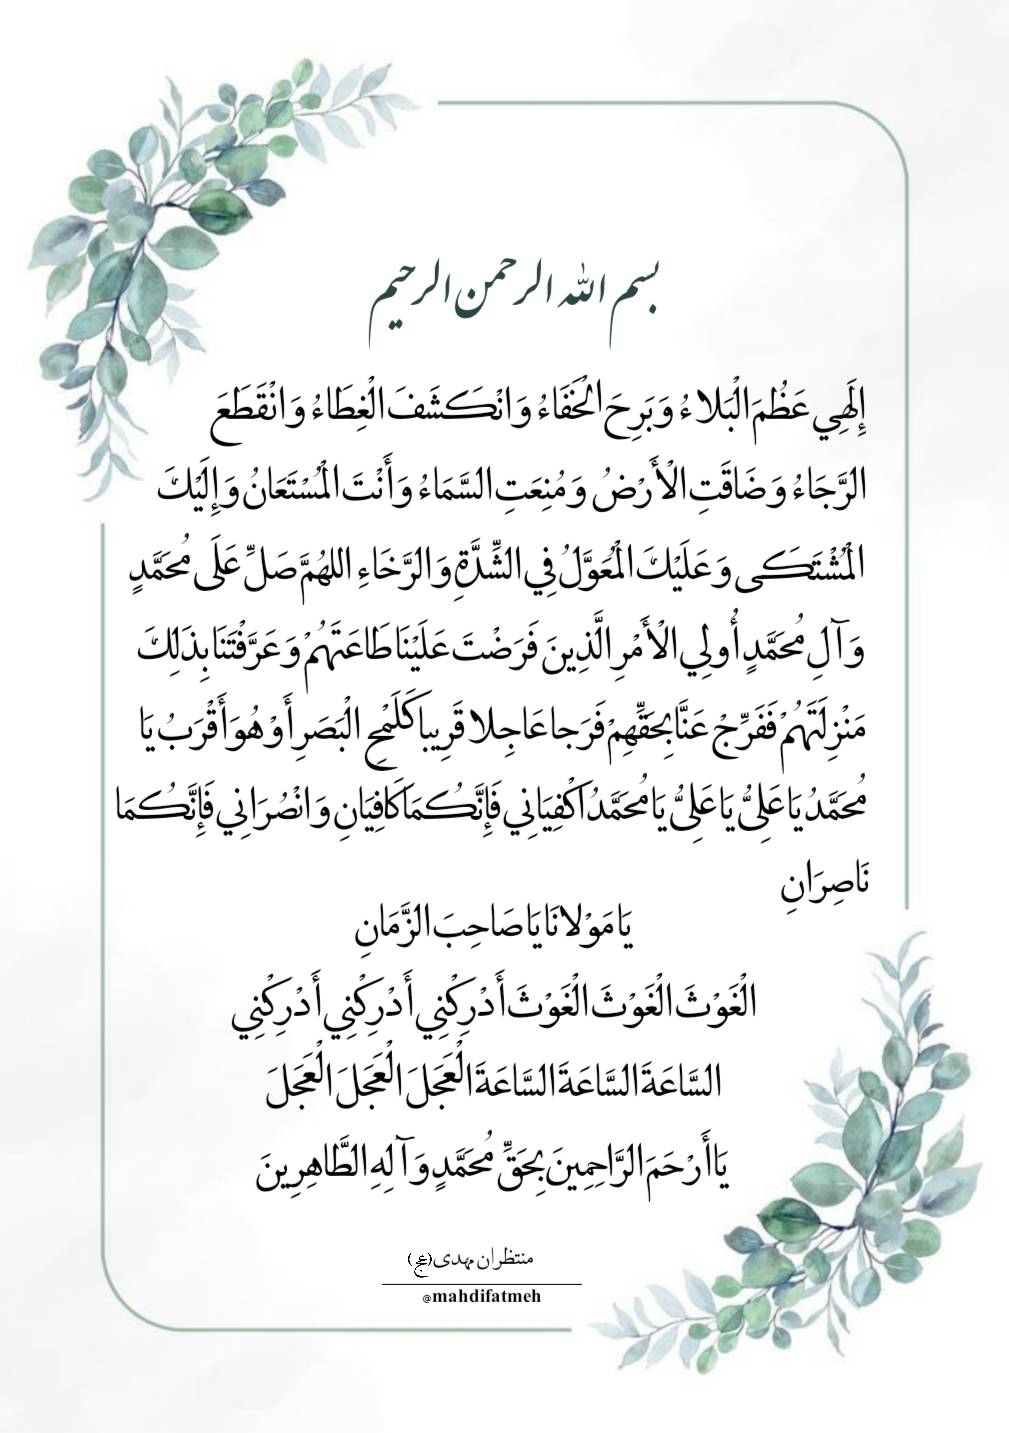 بسم الله الرحمن الرحیم
إِلَهِي عَظُمَ الْبَلاءُ وَ بَرِحَ الْخَفَاءُ وَ انْكَشَفَ الْغِطَاءُ وَ انْقَطَعَ
الرَّجَاءُ وَ ضَاقَتِ الْأَرْضُ وَ مُنِعَتِ السَّمَاءُ وَ أَنْتَ الْمُسْتَعَانُ وَ إِلَيْكَ
الْمُشْتَكَى وَ عَلَيْكَ الْمُعَوَّلُ فِي الشِّدَّةِ وَ الرَّخَاءِ اللهُمَّ صَلِّ عَلَى مُحَمَّدٍ
وَ آلِ مُحَمَّدٍ أُولِي الْأَمْرِ الَّذِينَ فَرَضْتَ عَلَيْنَا طَاعَتَهُمْ وَ عَرَّفْتَنَا بِذَلِكَ
مَنْزِلَتَهُمْ فَفَرِّجْ عَنَّا بِحَقِّهِمْ فَرَجا عَاجِلا قَرِيبا كَلَمْحِ الْبَصَرِ أَوْ هُوَ أَقْرَبُ يَا
مُحَمَّدُ يَا عَلِيُّ يَا عَلِيُّ يَا مُحَمَّدُ اكْفِيَانِي فَإِنَّكُمَا كَافِيَانِ وَ انْصُرَانِي فَإِنَّكُمَا
نَاصِرَانِ
يَا مَوْلانَا يَا صَاحِبَ الزَّمَانِ
الْغَوْثَ الْغَوْثَ الْغَوْثَ أَدْرِكْنِي أَدْرِكْنِي أَدْرِكْنِي
السَّاعَةَ السَّاعَةَ السَّاعَةَ الْعَجَلَ الْعَجَلَ الْعَجَلَ
يَا أَرْحَمَ الرَّاحِمِينَ بِحَقِّ مُحَمَّدٍ وَ آلِهِ الطَّاهِرِينَ
منتظران مهدی(عج)
@mahdifatmeh